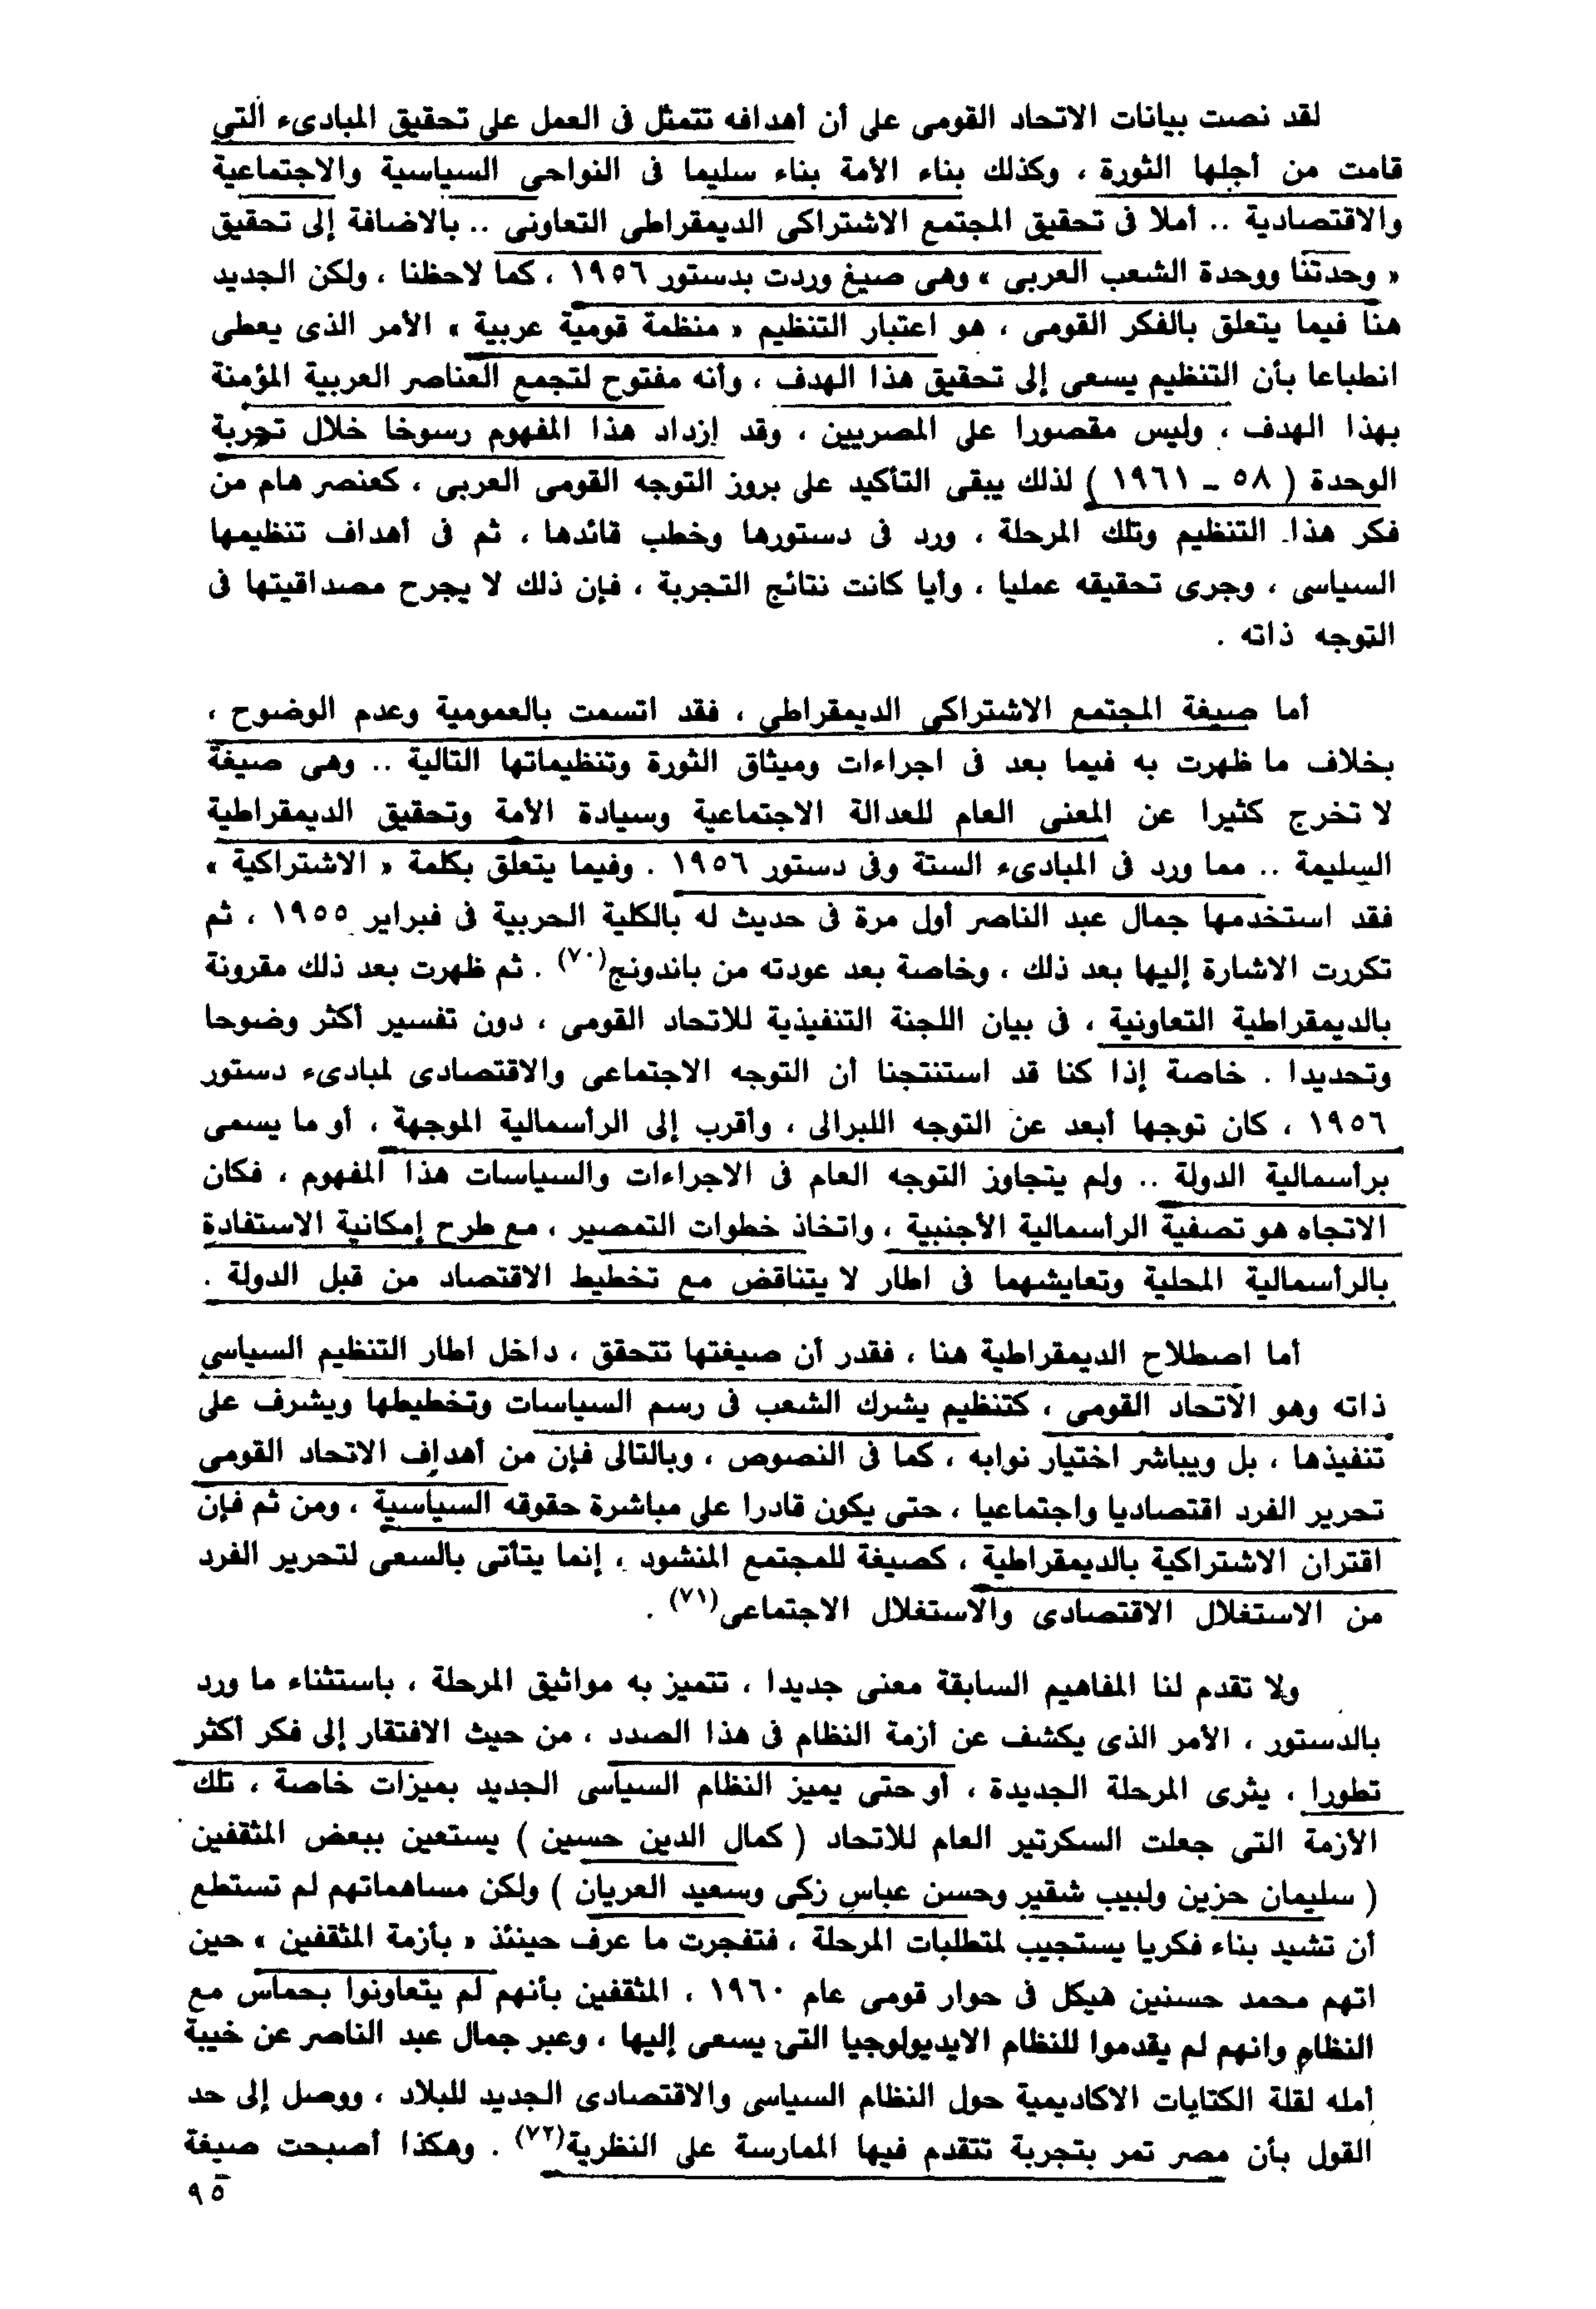 لقد نصت بيانات الاتحاد القومى على أن أهدافه تتمثل فى العمل على تحقيق المبادىء التى
قامت من أجلها الثورة ، وكذلك بناء الأمة بناء سليما فى النواحى السياسية والاجتماعية
والاقتصادية .. أملا فى تحقيق المجتمع الاشتراكى الديمقراطى التعاونى .. بالاضافة إلى تحقيق
« وحدتنا ووحدة الشعب العربى » وهى صيغ وردت بدستور ١٩٥٦ ، كما لاحظنا ، ولكن الجديد
هنا فيما يتعلق بالفكر القومى ، هو اعتبار التنظيم « منظمة قومية عربية » الأمر الذى يعطى
انطباعا بأن التنظيم يسعى إلى تحقيق هذا الهدف ، وأنه مفتوح لتجمع العناصر العربية المؤمنة
بهذا الهدف ، وليس مقصورا على المصريين ، وقد إزداد هذا المفهوم رسوخا خلال تجربة
الوحدة ( ٥٨ - ١٩٦١ ) لذلك يبقى التأكيد على بروز التوجه القومى العربى ، كعنصر هام من
فكر هذا التنظيم وتلك المرحلة ، ورد فى دستورها وخطب قائدها ، ثم فى أهداف تنظيمها
السياسى ، وجرى تحقيقه عمليا ، وأيا كانت نتائج التجربة ، فإن ذلك لا يجرح مصداقيتها فى
التوجه ذاته .
أما صيغة المجتمع الاشتراكى الديمقراطى ، فقد اتسمت بالعمومية وعدم الوضوح ،
بخلاف ما ظهرت به فيما بعد فى اجراءات وميثاق الثورة وتنظيماتها التالية .. وهى صيغة
لا تخرج كثيرا عن المعنى العام للعدالة الاجتماعية وسيادة الأمة وتحقيق الديمقراطية
السليمة .. مما ورد فى المبادىء الستة وفى دستور ١٩٥٦ . وفيما يتعلق بكلمة « الاشتراكية »
فقد استخدمها جمال عبد الناصر أول مرة فى حديث له بالكلية الحربية فى فبراير ١٩٥٥ ، ثم
تكررت الاشارة إليها بعد ذلك ، وخاصة بعد عودته من باندونج(٧٠) . ثم ظهرت بعد ذلك مقرونة
بالديمقراطية التعاونية ، فى بيان اللجنة التنفيذية للاتحاد القومى ، دون تفسير أكثر وضوحا
وتحديدا . خاصة إذا كنا قد استنتجنا أن التوجه الاجتماعى والاقتصادى لمبادىء دستور
١٩٥٦ ، كان توجها أبعد عن التوجه الليبرالى ، وأقرب إلى الرأسمالية الموجهة ، أو ما يسمى
برأسمالية الدولة .. ولم يتجاوز التوجه العام فى الاجراءات والسياسات هذا المفهوم ، فكان
الاتجاه هو تصفية الرأسمالية الأجنبية ، واتخاذ خطوات التمصير ، مع طرح إمكانية الاستفادة
بالرأسمالية المحلية وتعايشهما فى اطار لا يتناقض مع تخطيط الاقتصاد من قبل الدولة .
أما اصطلاح الديمقراطية هنا ، فقدر أن صيغتها تتحقق ، داخل اطار التنظيم السياسى
ذاته وهو الاتحاد القومى ، كتنظيم يشرك الشعب فى رسم السياسات وتخطيطها ويشرف على
تنفيذها ، بل ويباشر اختيار نوابه ، كما فى النصوص ، وبالتالى فإن من أهداف الاتحاد القومى
تحرير الفرد اقتصاديا واجتماعيا ، حتى يكون قادرا على مباشرة حقوقه السياسية ، ومن ثم فإن
اقتران الاشتراكية بالديمقراطية ، كصيغة للمجتمع المنشود ، إنما يتأتى بالسعى لتحرير الفرد
من الاستغلال الاقتصادى والاستغلال الاجتماعى(٧١) .
ولا تقدم لنا المفاهيم السابقة معنى جديدا ، تتميز به مواثيق المرحلة ، باستثناء ما ورد
بالدستور ، الأمر الذى يكشف عن أزمة النظام فى هذا الصدد ، من حيث الافتقار إلى فكر أكثر
تطورا ، يثرى المرحلة الجديدة ، أو حتى يميز النظام السياسى الجديد بميزات خاصة ، تلك
الأزمة التى جعلت السكرتير العام للاتحاد ( كمال الدين حسين ) يستعين ببعض المثقفين
( سليمان حزين ولبيب شقير وحسن عباس زكى وسعيد العريان ) ولكن مساهماتهم لم تستطع
أن تشيد بناء فكريا يستجيب لمتطلبات المرحلة ، فتفجرت ما عرف حينئذ « بأزمة المثقفين » حين
اتهم محمد حسنين هيكل فى حوار قومى عام ١٩٦٠ ، المثقفين بأنهم لم يتعاونوا بحماس مع
النظام وانهم لم يقدموا للنظام الايديولوجيا التى يسعى إليها ، وعبر جمال عبد الناصر عن خيبة
أمله لقلة الكتابات الاكاديمية حول النظام السياسى والاقتصادى الجديد للبلاد ، ووصل إلى حد
القول بأن مصر تمر بتجربة تتقدم فيها الممارسة على النظرية(٧٢) . وهكذا أصبحت صيغة
٩٥